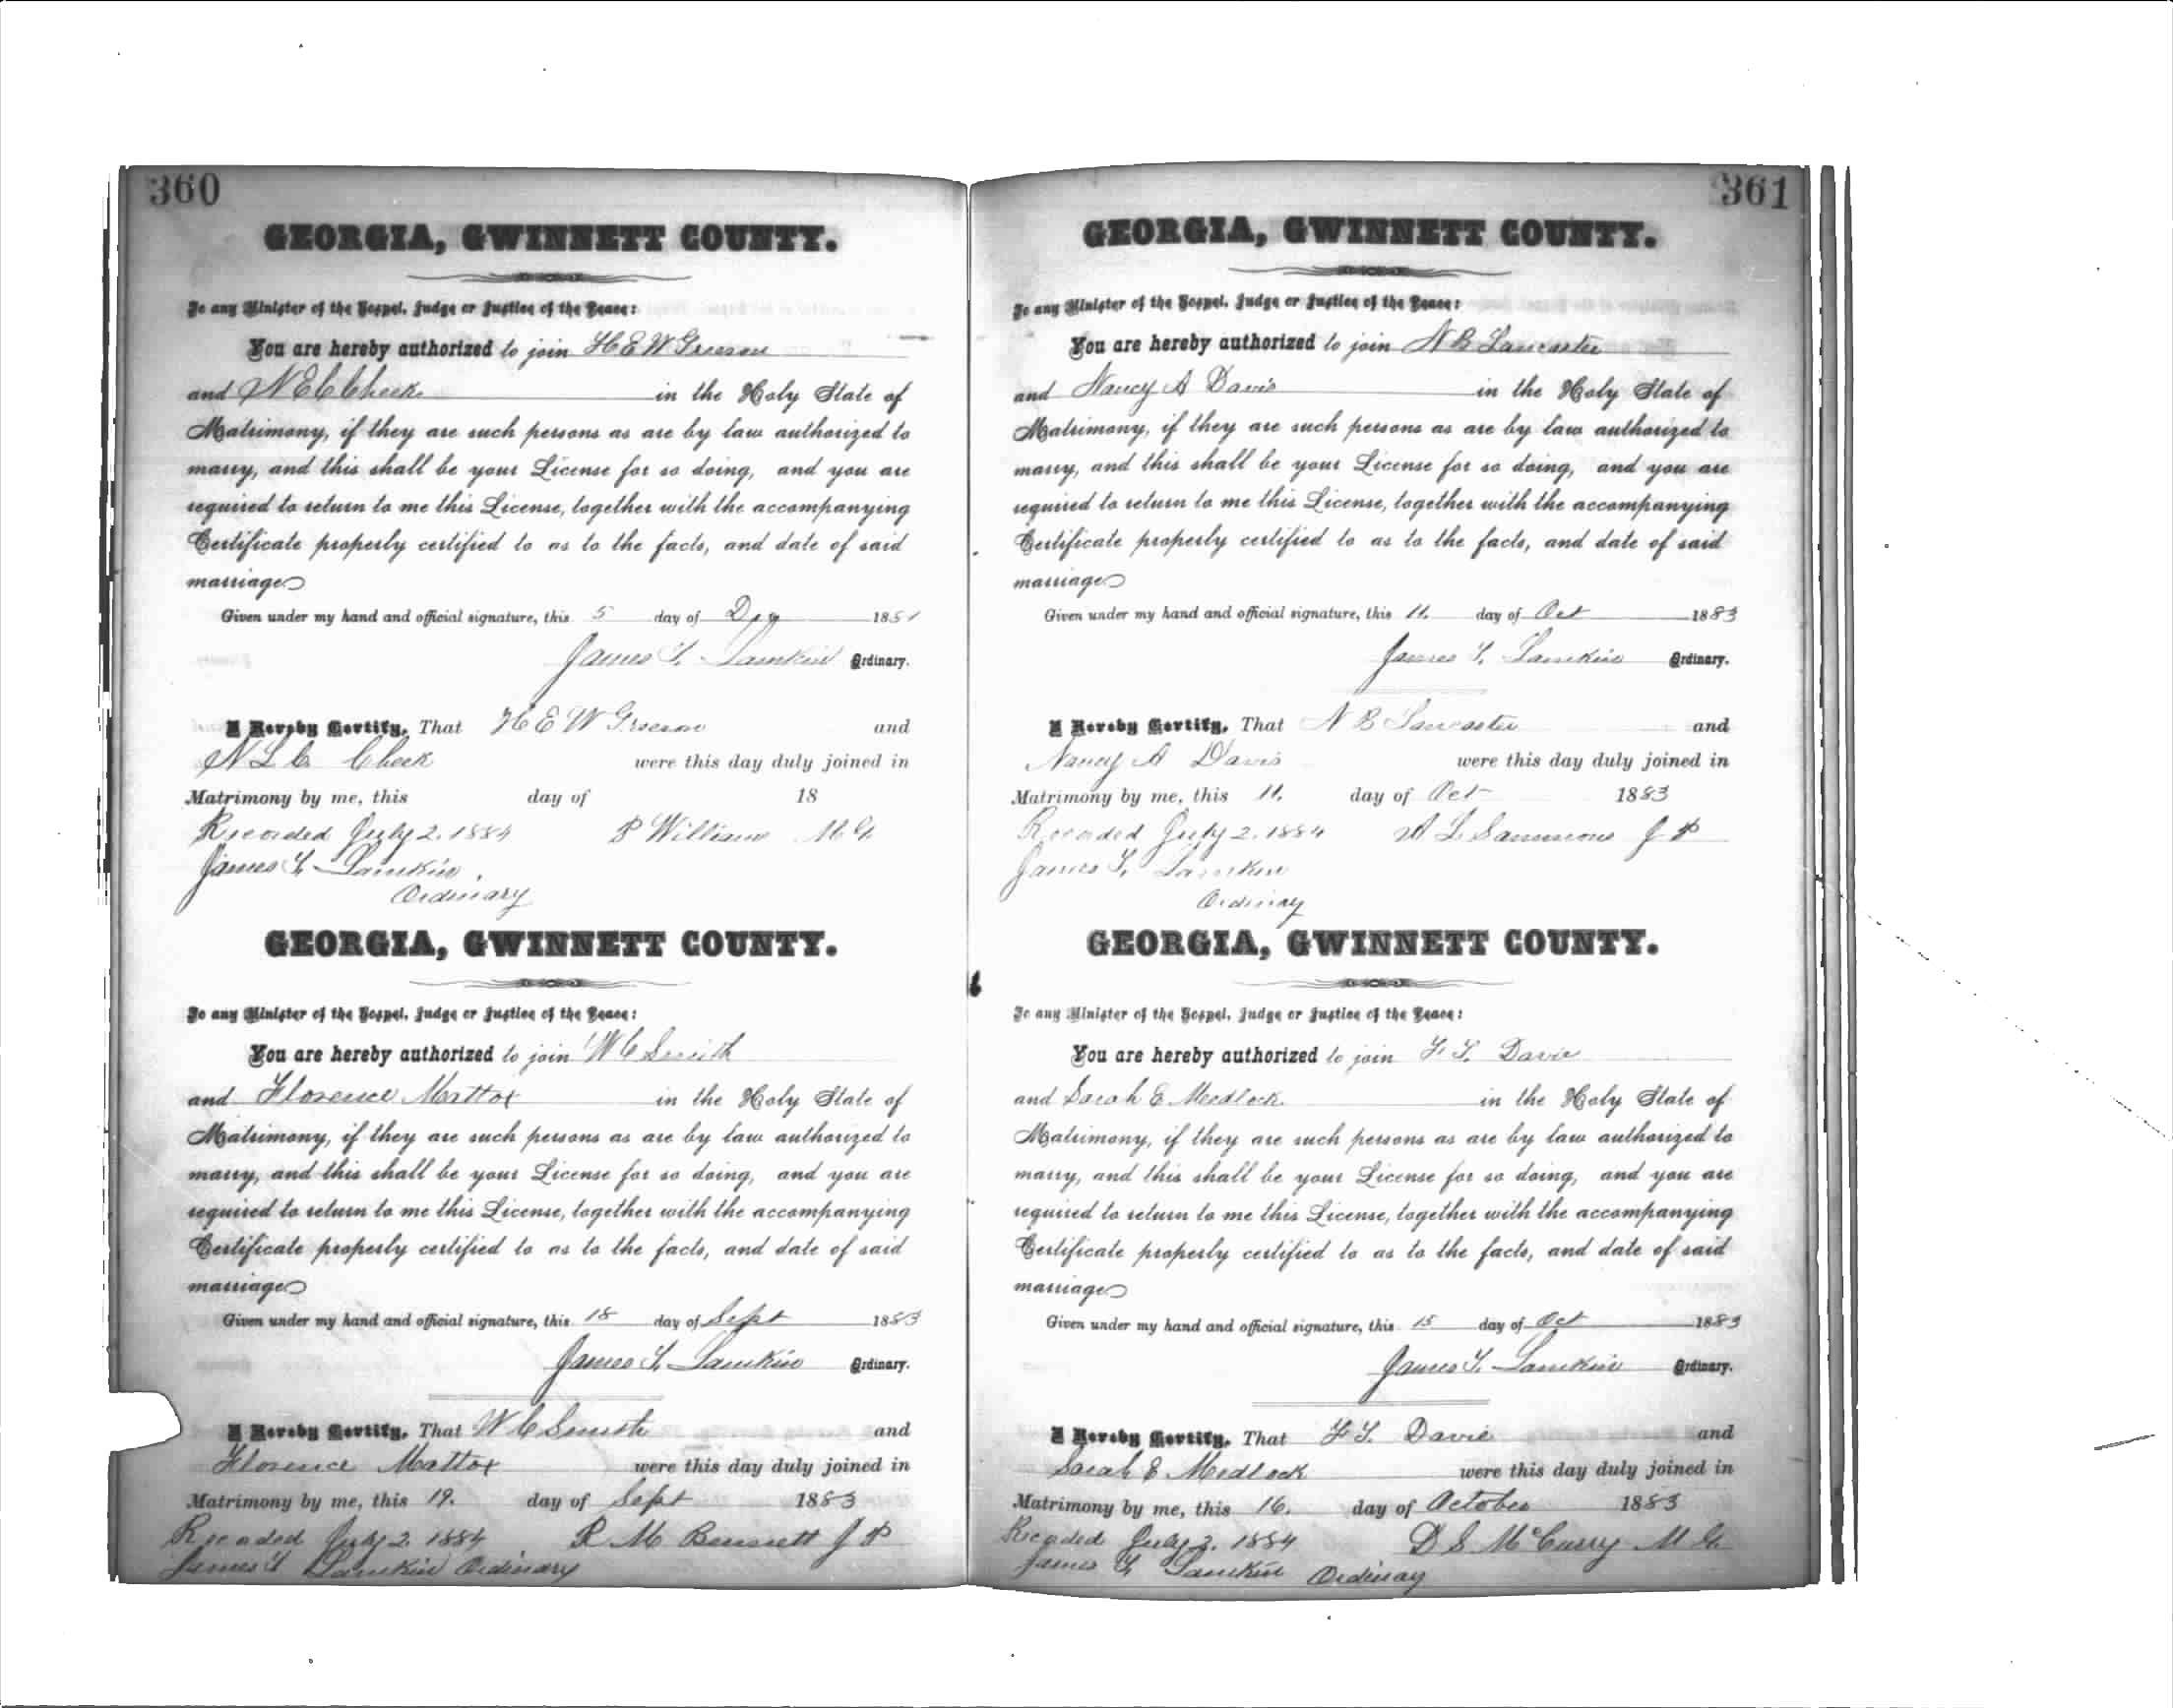 360
GEORGIA, GWINNETT COUNTY.
To any Minister of the Gospel, Judge or Justice of the Peace:
You are hereby authorized to join H E W
and N E C Cheek in the Holy State of
Matrimony, if they are such persons as are by law authorized to
marry, and this shall be your License for so doing, and you are
required to return to me this License, together with the accompanying
Certificate properly certified to as to the facts, and date of said
marriage
Given under my hand and official signature, this 5 day of
James T. Lamkin Ordinary.
I Hereby Certify, That H E W and
N L C Cheek were this day duly joined in
Matrimony by me, this day of 18
Recorded July 2. 1884 P Williams M G
James T. Lamkin.
Ordinary
GEORGIA, GWINNETT COUNTY.
To any Minister of the Gospel, Judge or Justice of the Peace:
You are hereby authorized to join W C Smith
and Florence Mattox in the Holy State of
Matrimony, if they are such persons as are by law authorized to
marry, and this shall be your License for so doing, and you are
required to return to me this License, together with the accompanying
Certificate properly certified to as to the facts, and date of said
marriage
Given under my hand and official signature, this 18 day of Sept 1883
James T. Lamkin Ordinary.
I Hereby Certify, That W C Smith and
Florence Mattox were this day duly joined in
Matrimony by me, this 19. day of Sept 1883
Recorded July 2. 1884 R M Bennett J P
James T Lamkin Ordinary
361
GEORGIA, GWINNETT COUNTY.
To any Minister of the Gospel, Judge or Justice of the Peace:
You are hereby authorized to join N B Lancaster
and Nancy A Davis in the Holy State of
Matrimony, if they are such persons as are by law authorized to
marry, and this shall be your License for so doing, and you are
required to return to me this License, together with the accompanying
Certificate properly certified to as to the facts, and date of said
marriage
Given under my hand and official signature, this 11. day of Oct 1883
James T. Lamkin Ordinary.
I Hereby Certify, That N B Lancaster and
Nancy A Davis were this day duly joined in
Matrimony by me, this 11. day of Oct 1883
Recorded July 2. 1884 L Sammons J P
James T. Lamkin
Ordinary
GEORGIA, GWINNETT COUNTY.
To any Minister of the Gospel, Judge or Justice of the Peace:
You are hereby authorized to join F. T. Davie
and Sarah E Medlock in the Holy State of
Matrimony, if they are such persons as are by law authorized to
marry, and this shall be your License for so doing, and you are
required to return to me this License, together with the accompanying
Certificate properly certified to as to the facts, and date of said
marriage
Given under my hand and official signature, this 15 day of Oct 1883
James T. Lamkin Ordinary.
I Hereby Certify, That F T. Davie and
Sarah E Medlock were this day duly joined in
Matrimony by me, this 16. day of October 1883
Recorded July 2. 1884 D S McCurry M G.
James T. Lamkin Ordinary